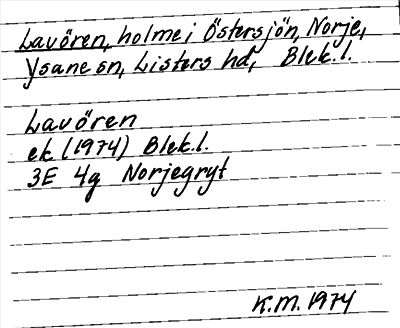 Lavören, holme i Östersjön, Norje,
Ysane sn, Listers hd, Blek. l.
Lavören
ek (1974) Blek. l.
3E 4g Norjegryt
K.M. 1974